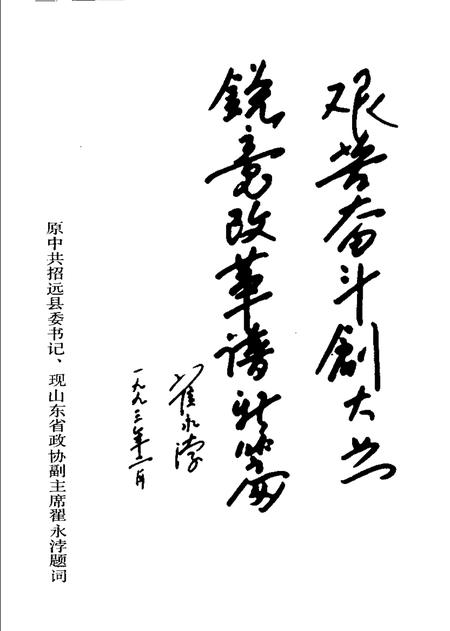 艰苦奋斗創大业
銳意改革譜新篇
翟永浡
一九九三年二月
原中共招远县委书记、现山东省政协副主席翟永浡题词